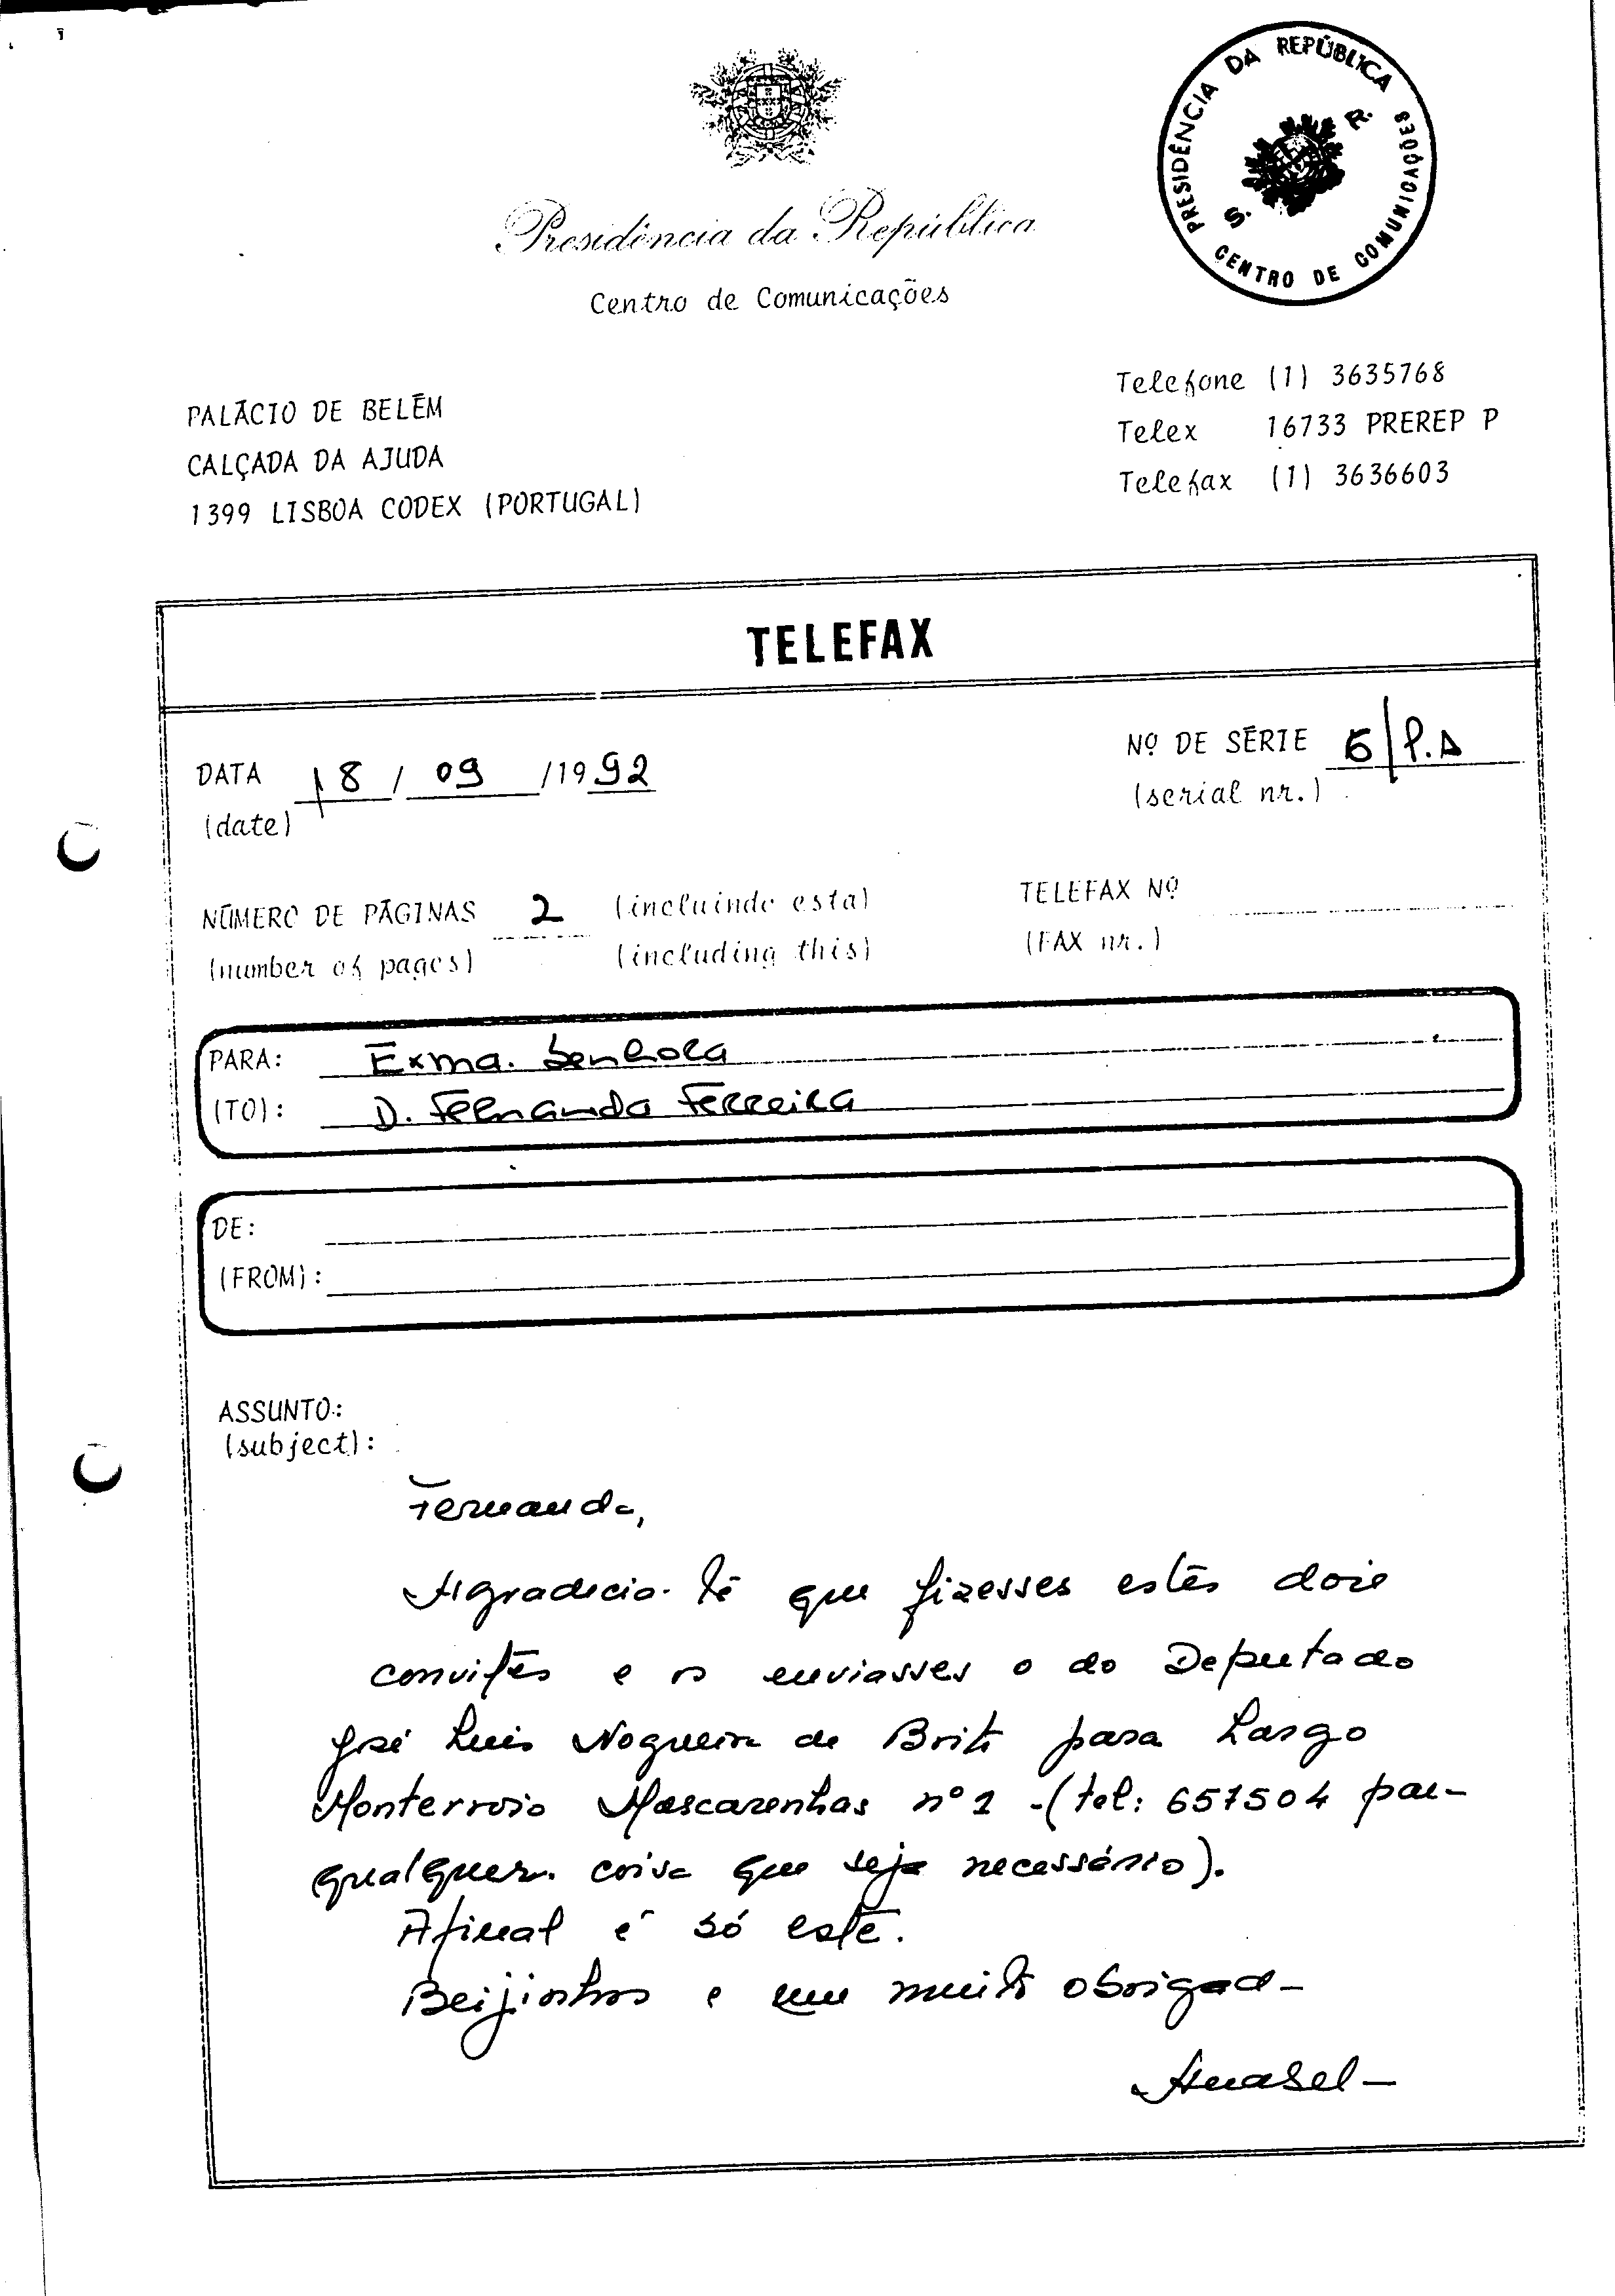 PRESIDÊNCIA DA REPÚBLICA
S. R.
CENTRO DE COMUNICAÇÕES
Presidência da República
Centro de Comunicações
PALÁCIO DE BELÉM
CALÇADA DA AJUDA
1399 LISBOA CODEX (PORTUGAL)
Telefone (1) 3635768
Telex 16733 PREREP P
Telefax (1) 3636603
TELEFAX
DATA 18 / 09 /1992
(date)
Nº DE SÉRIE
(serial nr.)
NÚMERO DE PÁGINAS 2 (incluindo esta)
(number of pages) (including this)
TELEFAX Nº
(FAX nr.)
PARA: Exma. Senhora
(TO): D. Fernanda Ferreira
DE:
(FROM):
ASSUNTO:
(subject):
Fernanda,
Agradecia-te que fizesses estes dois
convites e os enviasses o do Deputado
José Luis Nogueira de Brito para Largo
Monterroio Mascarenhas nº 1 - (tel: 657504 para
qualquer coisa que seja necessário).
Afinal é só este.
Beijinhos e um muito obrigada